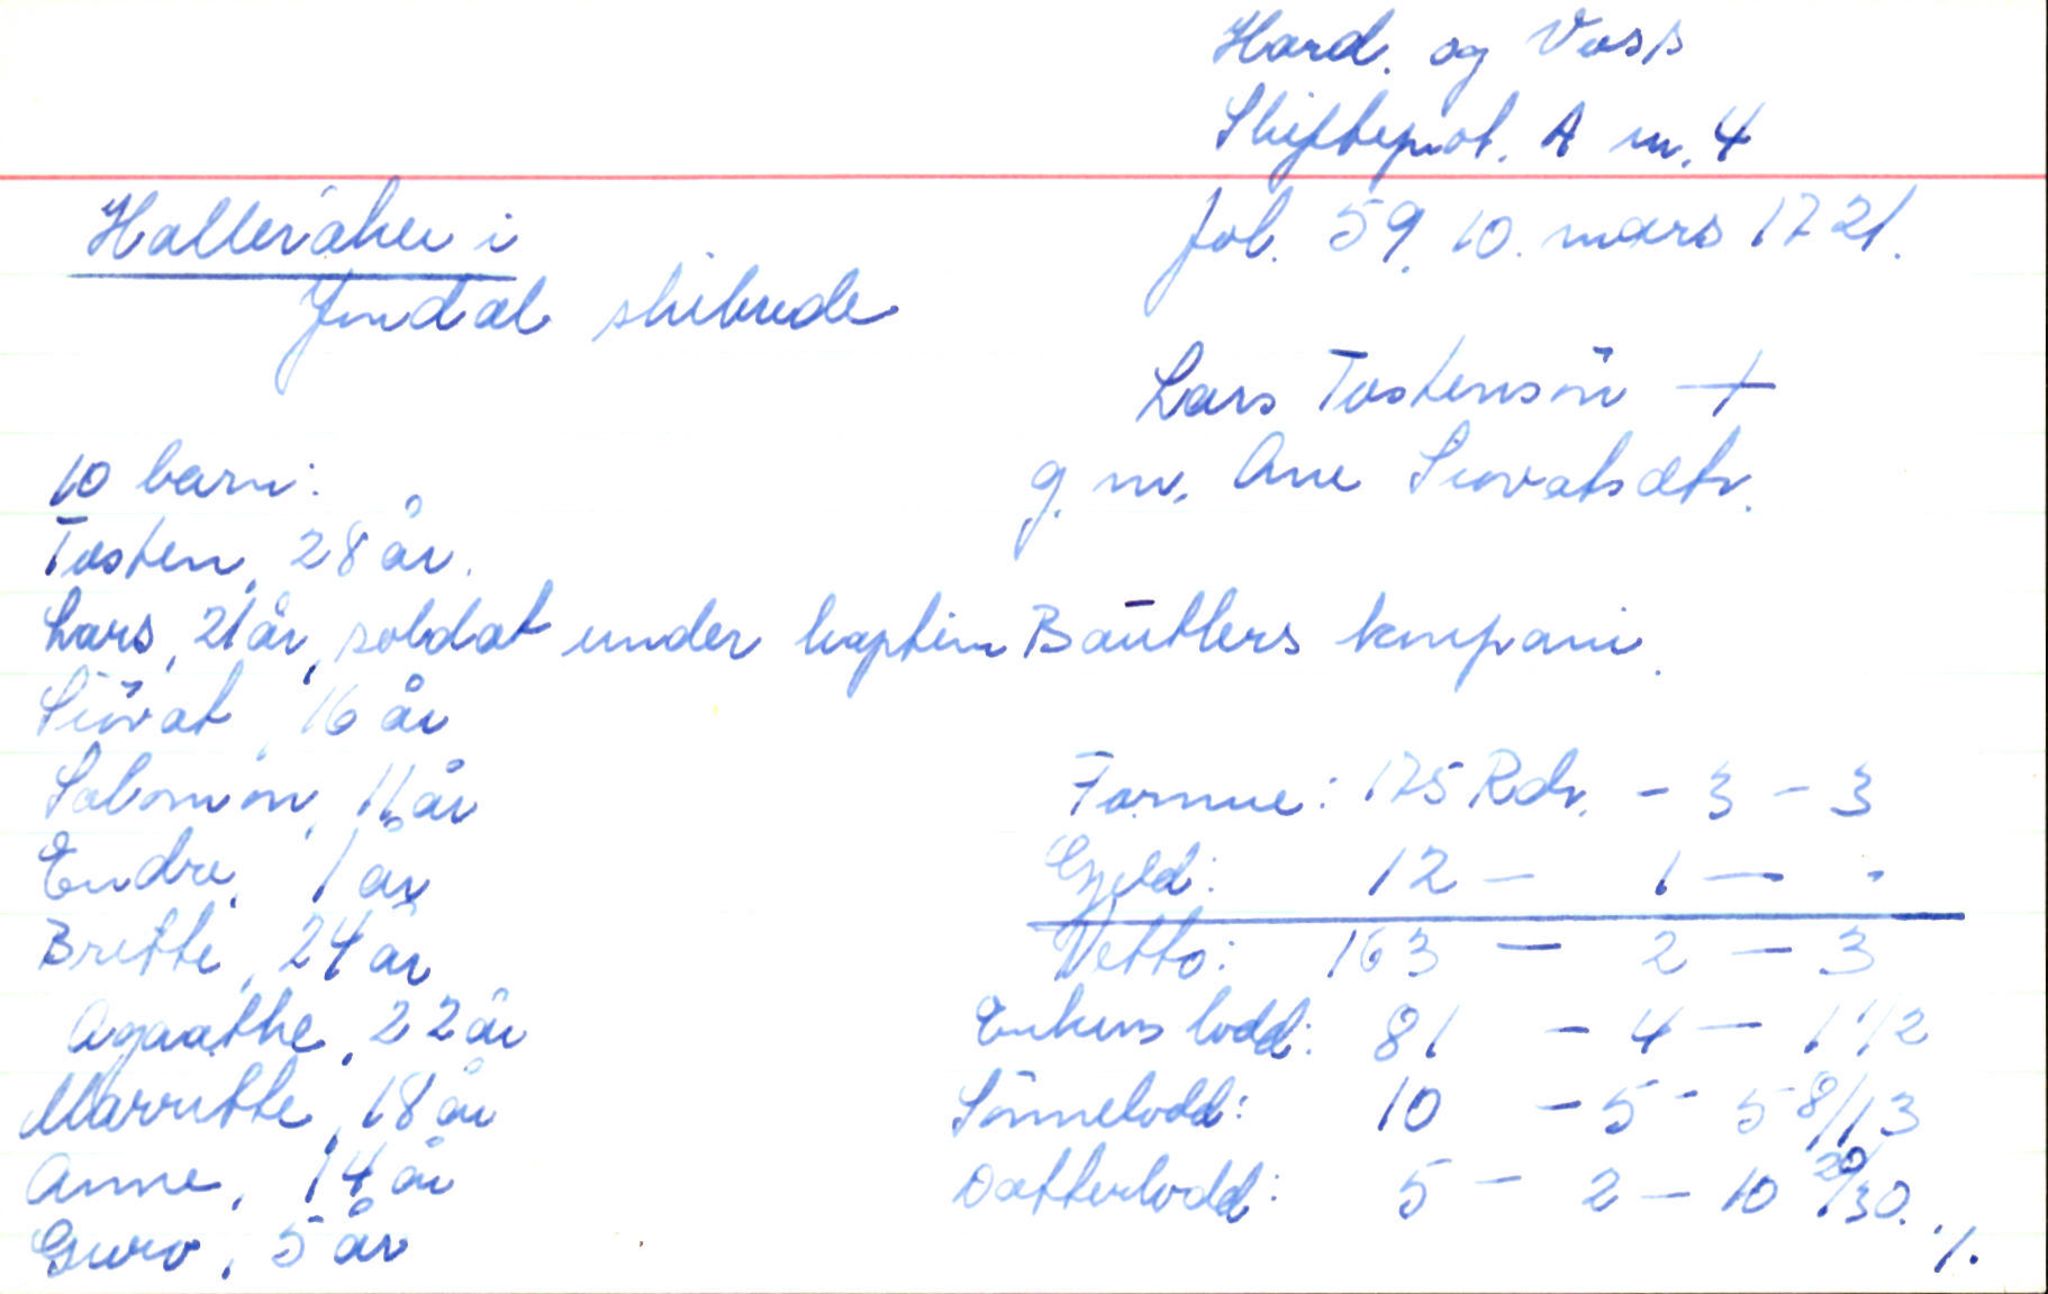 Hard. og Voss
Skifteprot. A nr. 4
Halleråker i
fol. 59, 10. mars 1721.
Jondal skibrede
Lars Tostensön +
g. m. Ane Siovatsdtr.
10 barn:
Tosten, 28 år.
Lars, 21 år, soldat under kaptein Baütlers kompani.
Siövat, 16 år
Salomon, 11 år
Endre, 1 år
Britte, 24 år
Agaathe, 22 år
Marritte, 18 år
Anne, 14 år
Guro, 5 år
Formue: 175 Rdr. - 3 - 3
Gjeld: 12 - 1 - -
Netto: 163 - 2 - 3
Enkens lodd: 81 - 4 - 1 1/2
Sönnelodd: 10 - 5 - 5 8/13
Datterlodd: 5 - 2 - 10 20/30. ./.